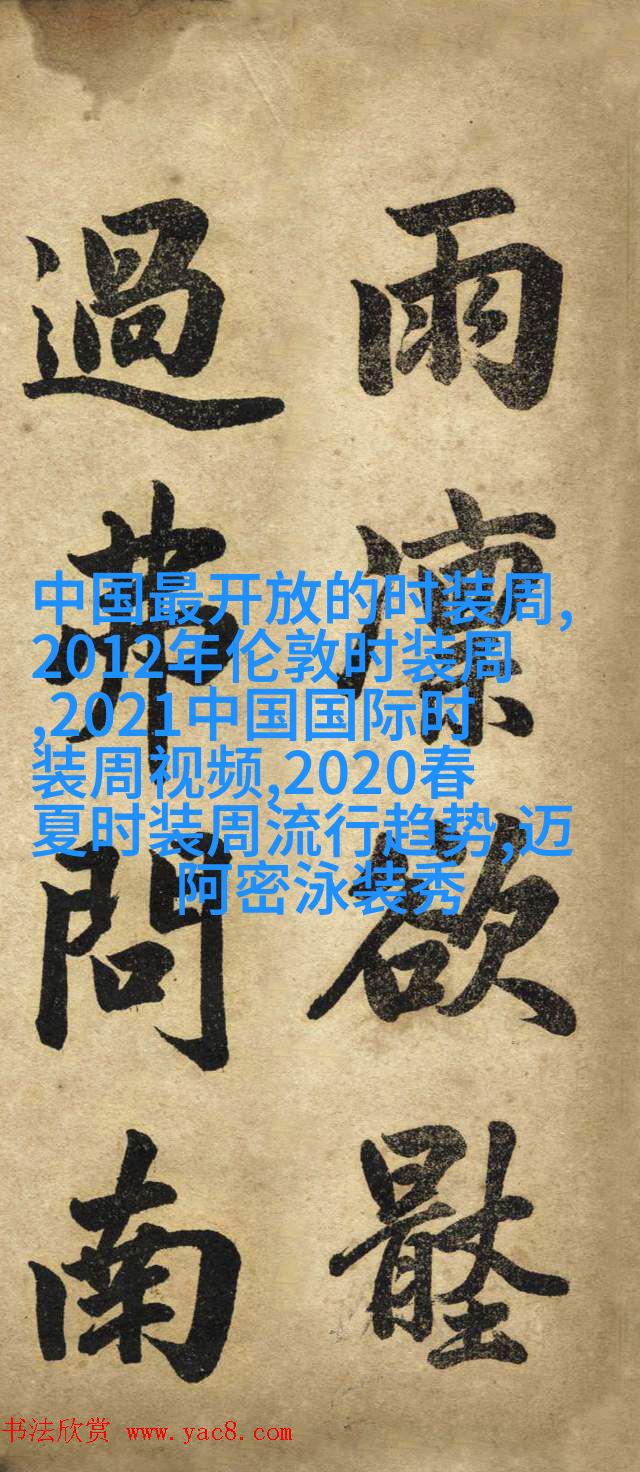 雨
欲
過
問南
中国最开放的时装周,
2012年伦敦时装周
,2021中国国际时
装周视频,2020春
夏时装周流行趋势,迈
阿密泳装秀
书法欣赏 www.yac8.com